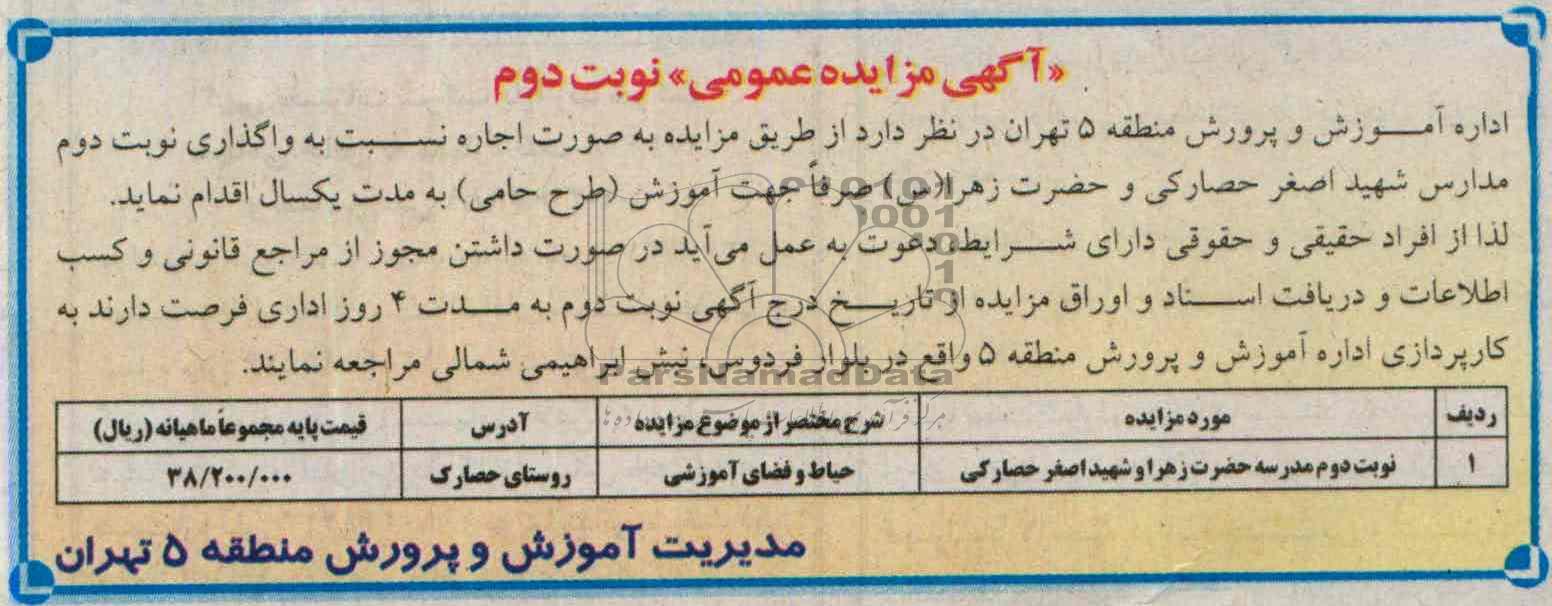 «آگهی مزایده عمومی» نوبت دوم
اداره آموزش و پرورش منطقه ۵ تهران در نظر دارد از طریق مزایده به صورت اجاره نسبت به واگذاری نوبت دوم
مدارس شهید اصغر حصارکی و حضرت زهرا(س) صرفاً جهت آموزش (طرح حامی) به مدت یکسال اقدام نماید.
لذا از افراد حقیقی و حقوقی دارای شرایط، دعوت به عمل می‌آید در صورت داشتن مجوز از مراجع قانونی و کسب
اطلاعات و دریافت اسناد و اوراق مزایده از تاریخ درج آگهی نوبت دوم به مدت ۴ روز اداری فرصت دارند به
کارپردازی اداره آموزش و پرورش منطقه ۵ واقع در بلوار فردوس، نبش ابراهیمی شمالی مراجعه نمایند.
ParsNamadData
ردیف مورد مزایده شرح مختصر از موضوع مزایده آدرس قیمت پایه مجموعاً ماهیانه (ریال)
۱ نوبت دوم مدرسه حضرت زهرا و شهید اصغر حصارکی حیاط و فضای آموزشی روستای حصارک ۳۸/۲۰۰/۰۰۰
مدیریت آموزش و پرورش منطقه ۵ تهران